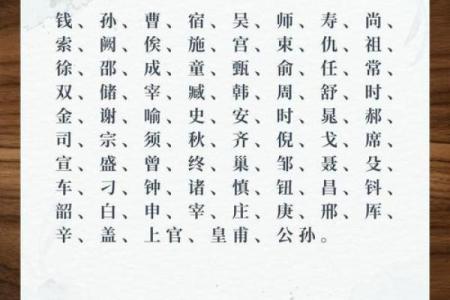 钱、孙、曹、宿、吴、师、寿、尚、
索、阙、俟、施、宫、束、仇、祖、
徐、邵、成、童、甄、俞、任、常、
双、储、宰、臧、韩、周、舒、时、
金、谢、喻、史、安、时、晁、郝、
司、宗、须、秋、齐、倪、戈、席、
宣、盛、曾、终、巢、邹、聂、殳、
车、刁、钟、诸、慎、钮、昌、钭、
韶、白、申、宰、庄、庚、邢、厍、
辛、盖、上官、皇甫、公孙。